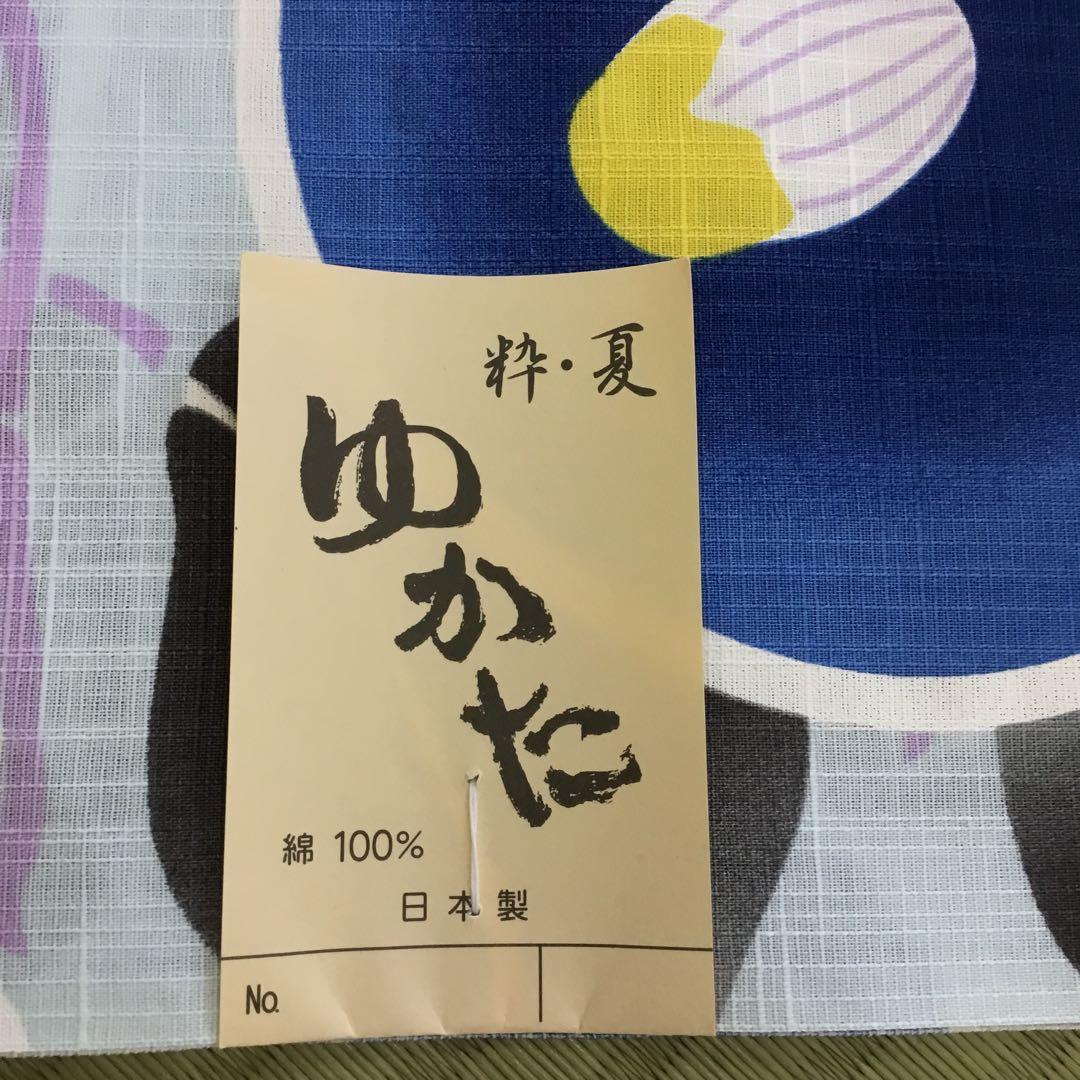 粋・夏
ゆかた
綿 100%
日本製
No.